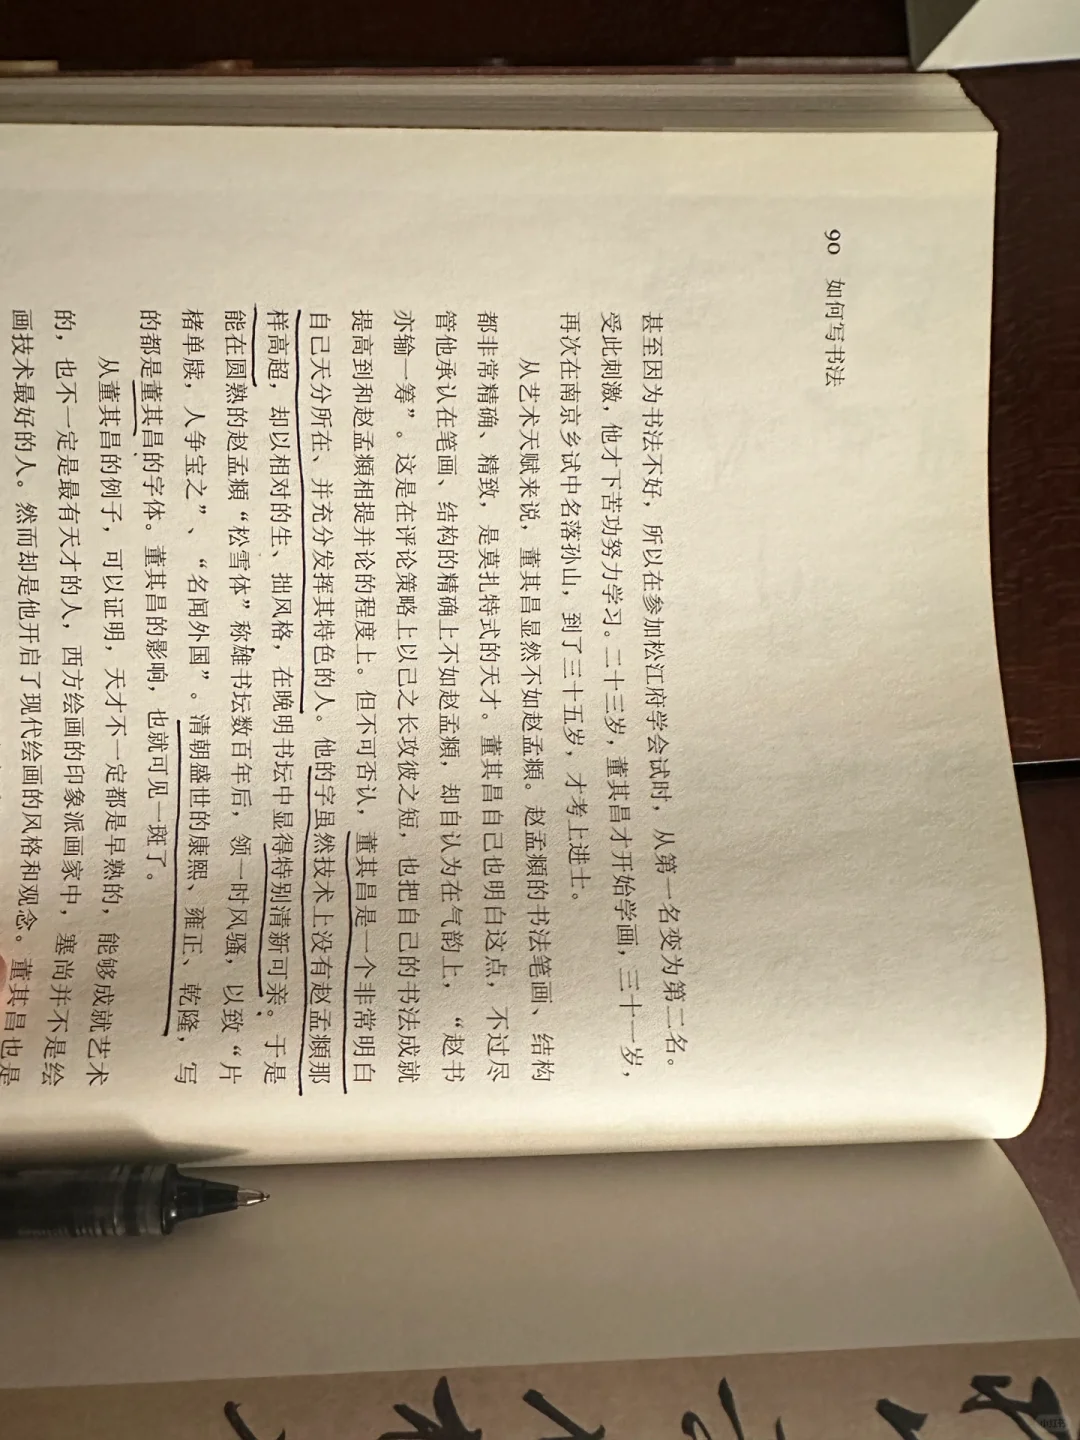 90 如何写书法
甚至因为书法不好，所以在参加松江府学会试时，从第一名变为第二名。
受此刺激，他才下苦功努力学习。二十三岁，董其昌才开始学画，三十一岁，
再次在南京乡试中名落孙山，到了三十五岁，才考上进士。
从艺术天赋来说，董其昌显然不如赵孟頫。赵孟頫的书法笔画、结构
都非常精确、精致，是莫扎特式的天才。董其昌自己也明白这点，不过尽
管他承认在笔画、结构的精确上不如赵孟頫，却自认为在气韵上，“赵书
亦输一筹”。这是在评论策略上以己之长攻彼之短，也把自己的书法成就
提高到和赵孟頫相提并论的程度上。但不可否认，董其昌是一个非常明白
自己天分所在、并充分发挥其特色的人。他的字虽然技术上没有赵孟頫那
样高超，却以相对的生、拙风格，在晚明书坛中显得特别清新可亲。于是
能在圆熟的赵孟頫“松雪体”称雄书坛数百年后，领一时风骚，以致“片
楮单牍，人争宝之”、“名闻外国”。清朝盛世的康熙、雍正、乾隆，写
的都是董其昌的字体。董其昌的影响，也就可见一斑了。
从董其昌的例子，可以证明，天才不一定都是早熟的，能够成就艺术
的，也不一定是最有天才的人，西方绘画的印象派画家中，塞尚并不是绘
画技术最好的人。然而却是他开启了现代绘画的风格和观念。董其昌也是
小红书